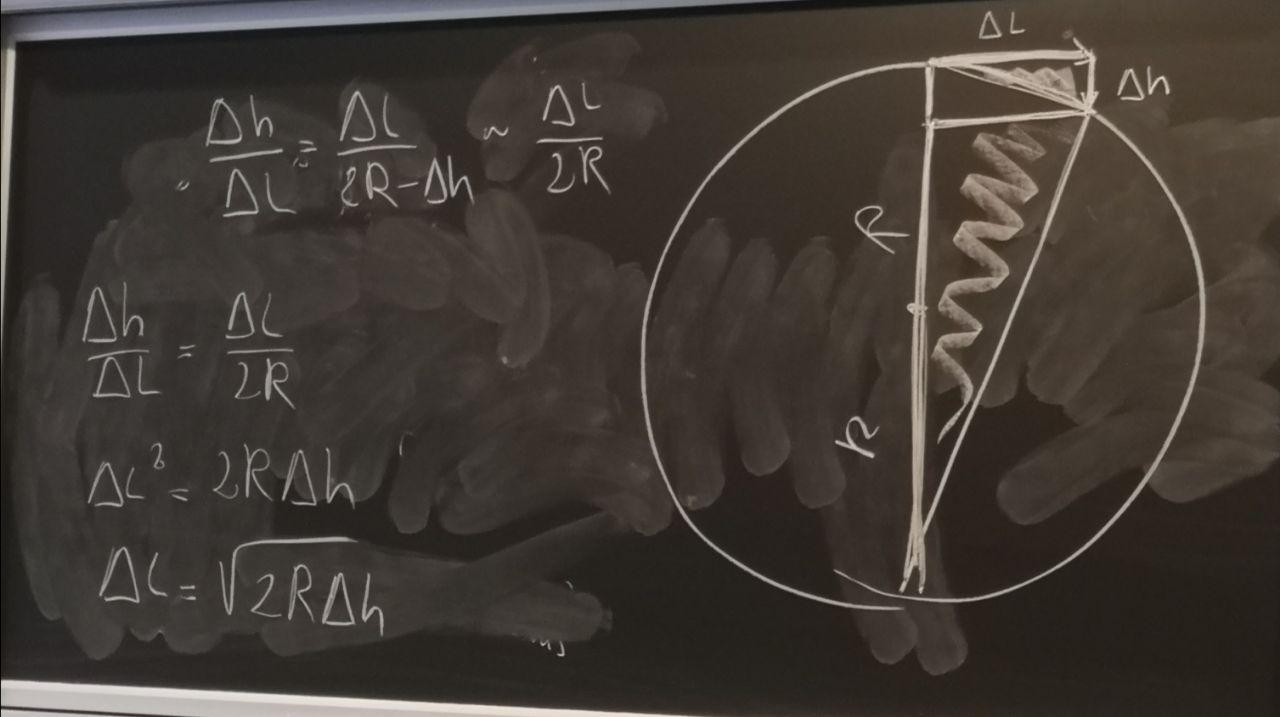 Δh/ΔL = ΔL/(2R-Δh) ~ ΔL/2R
Δh/ΔL = ΔL/2R
ΔL² = 2RΔh
ΔL = √2RΔh
ΔL
Δh
R
R